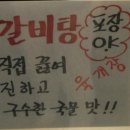 갈비탕
포장
야
직접 끓여
진하고
구수한 국물 맛!!
육개장